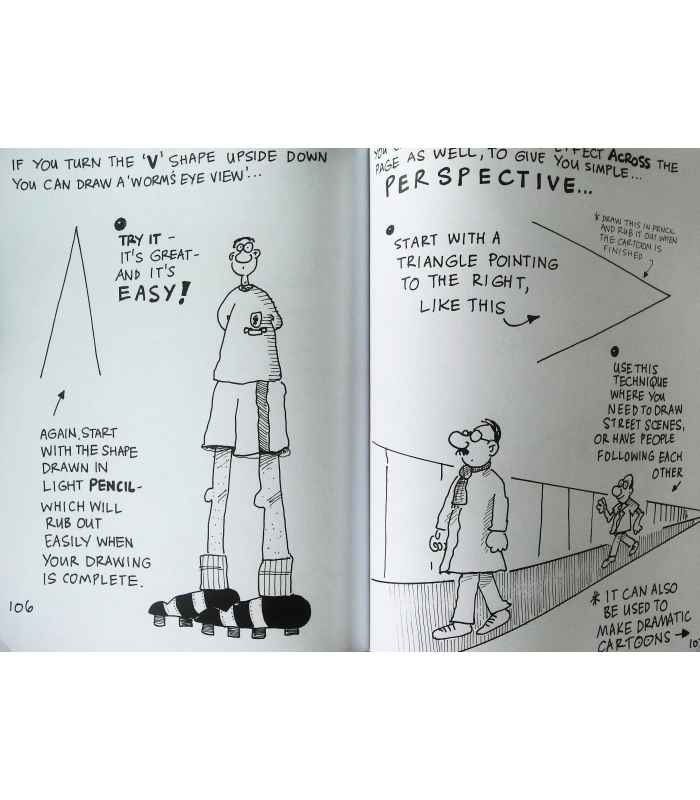 IF YOU TURN THE 'V' SHAPE UPSIDE DOWN
YOU CAN DRAW A 'WORM'S EYE VIEW'...
TRY IT -
IT'S GREAT -
AND IT'S
EASY!
AGAIN, START
WITH THE SHAPE
DRAWN IN
LIGHT PENCIL -
WHICH WILL
RUB OUT
EASILY WHEN
YOUR DRAWING
IS COMPLETE.
106
YOU ACROSS THE
PAGE AS WELL, TO GIVE YOU SIMPLE...
PERSPECTIVE...
START WITH A
TRIANGLE POINTING
TO THE RIGHT,
LIKE THIS
* DRAW THIS IN PENCIL
AND RUB IT OUT WHEN
THE CARTOON IS
FINISHED
USE THIS
TECHNIQUE
WHERE YOU
NEED TO DRAW
STREET SCENES,
OR HAVE PEOPLE
FOLLOWING EACH
OTHER
* IT CAN ALSO
BE USED TO
MAKE DRAMATIC
CARTOONS